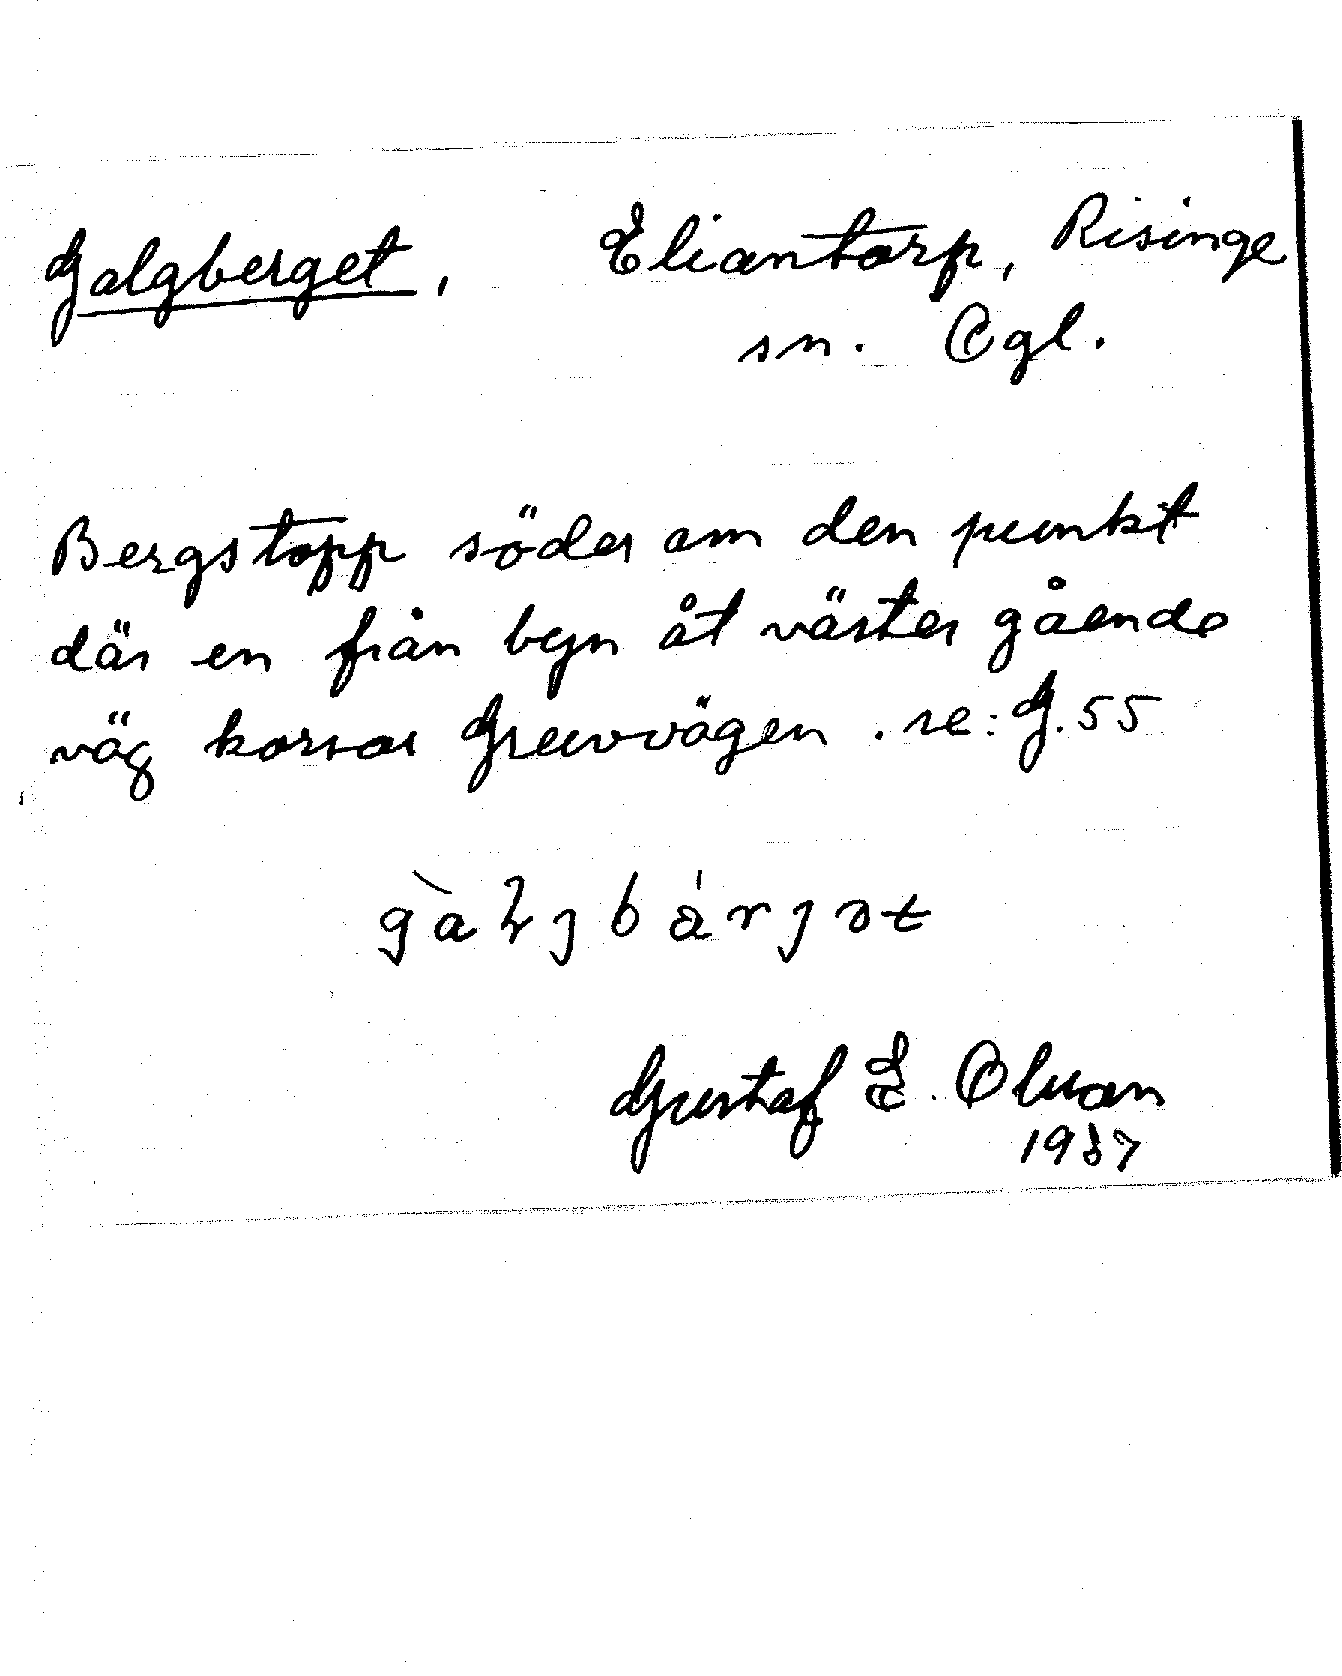 Galgberget, Eliantorp, Risinge
sn. Ögl.
Bergstopp söder om den punkt
där en från byn åt väster gående
väg korsar Gruvvägen. se: G. 55
Gustaf E. Olsson
1987